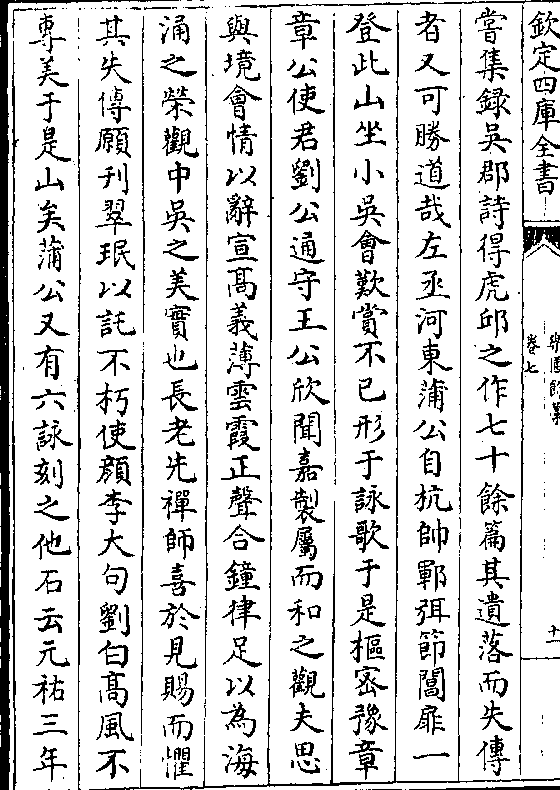 欽定四庫全書
樂圃餘藁
卷七
十一
嘗集録吳郡詩得虎邱之作七十餘篇其遺落而失傳
者又可勝道哉左丞河東蒲公自抗帥鄆弭節閶扉一
登此山坐小吳會歎賞不已形于詠歌于是樞密豫章
章公使君劉公通守王公欣聞嘉製屬而和之觀夫思
與境會情以辭宣髙義薄雲霞正聲合鐘律足以為海
涌之榮觀中吳之美實也長老先禪師喜於見賜而懼
其失傳願刋翠珉以託不朽使顔李大句劉白髙風不
專美于是山矣蒲公又有六詠刻之他石云元祐三年